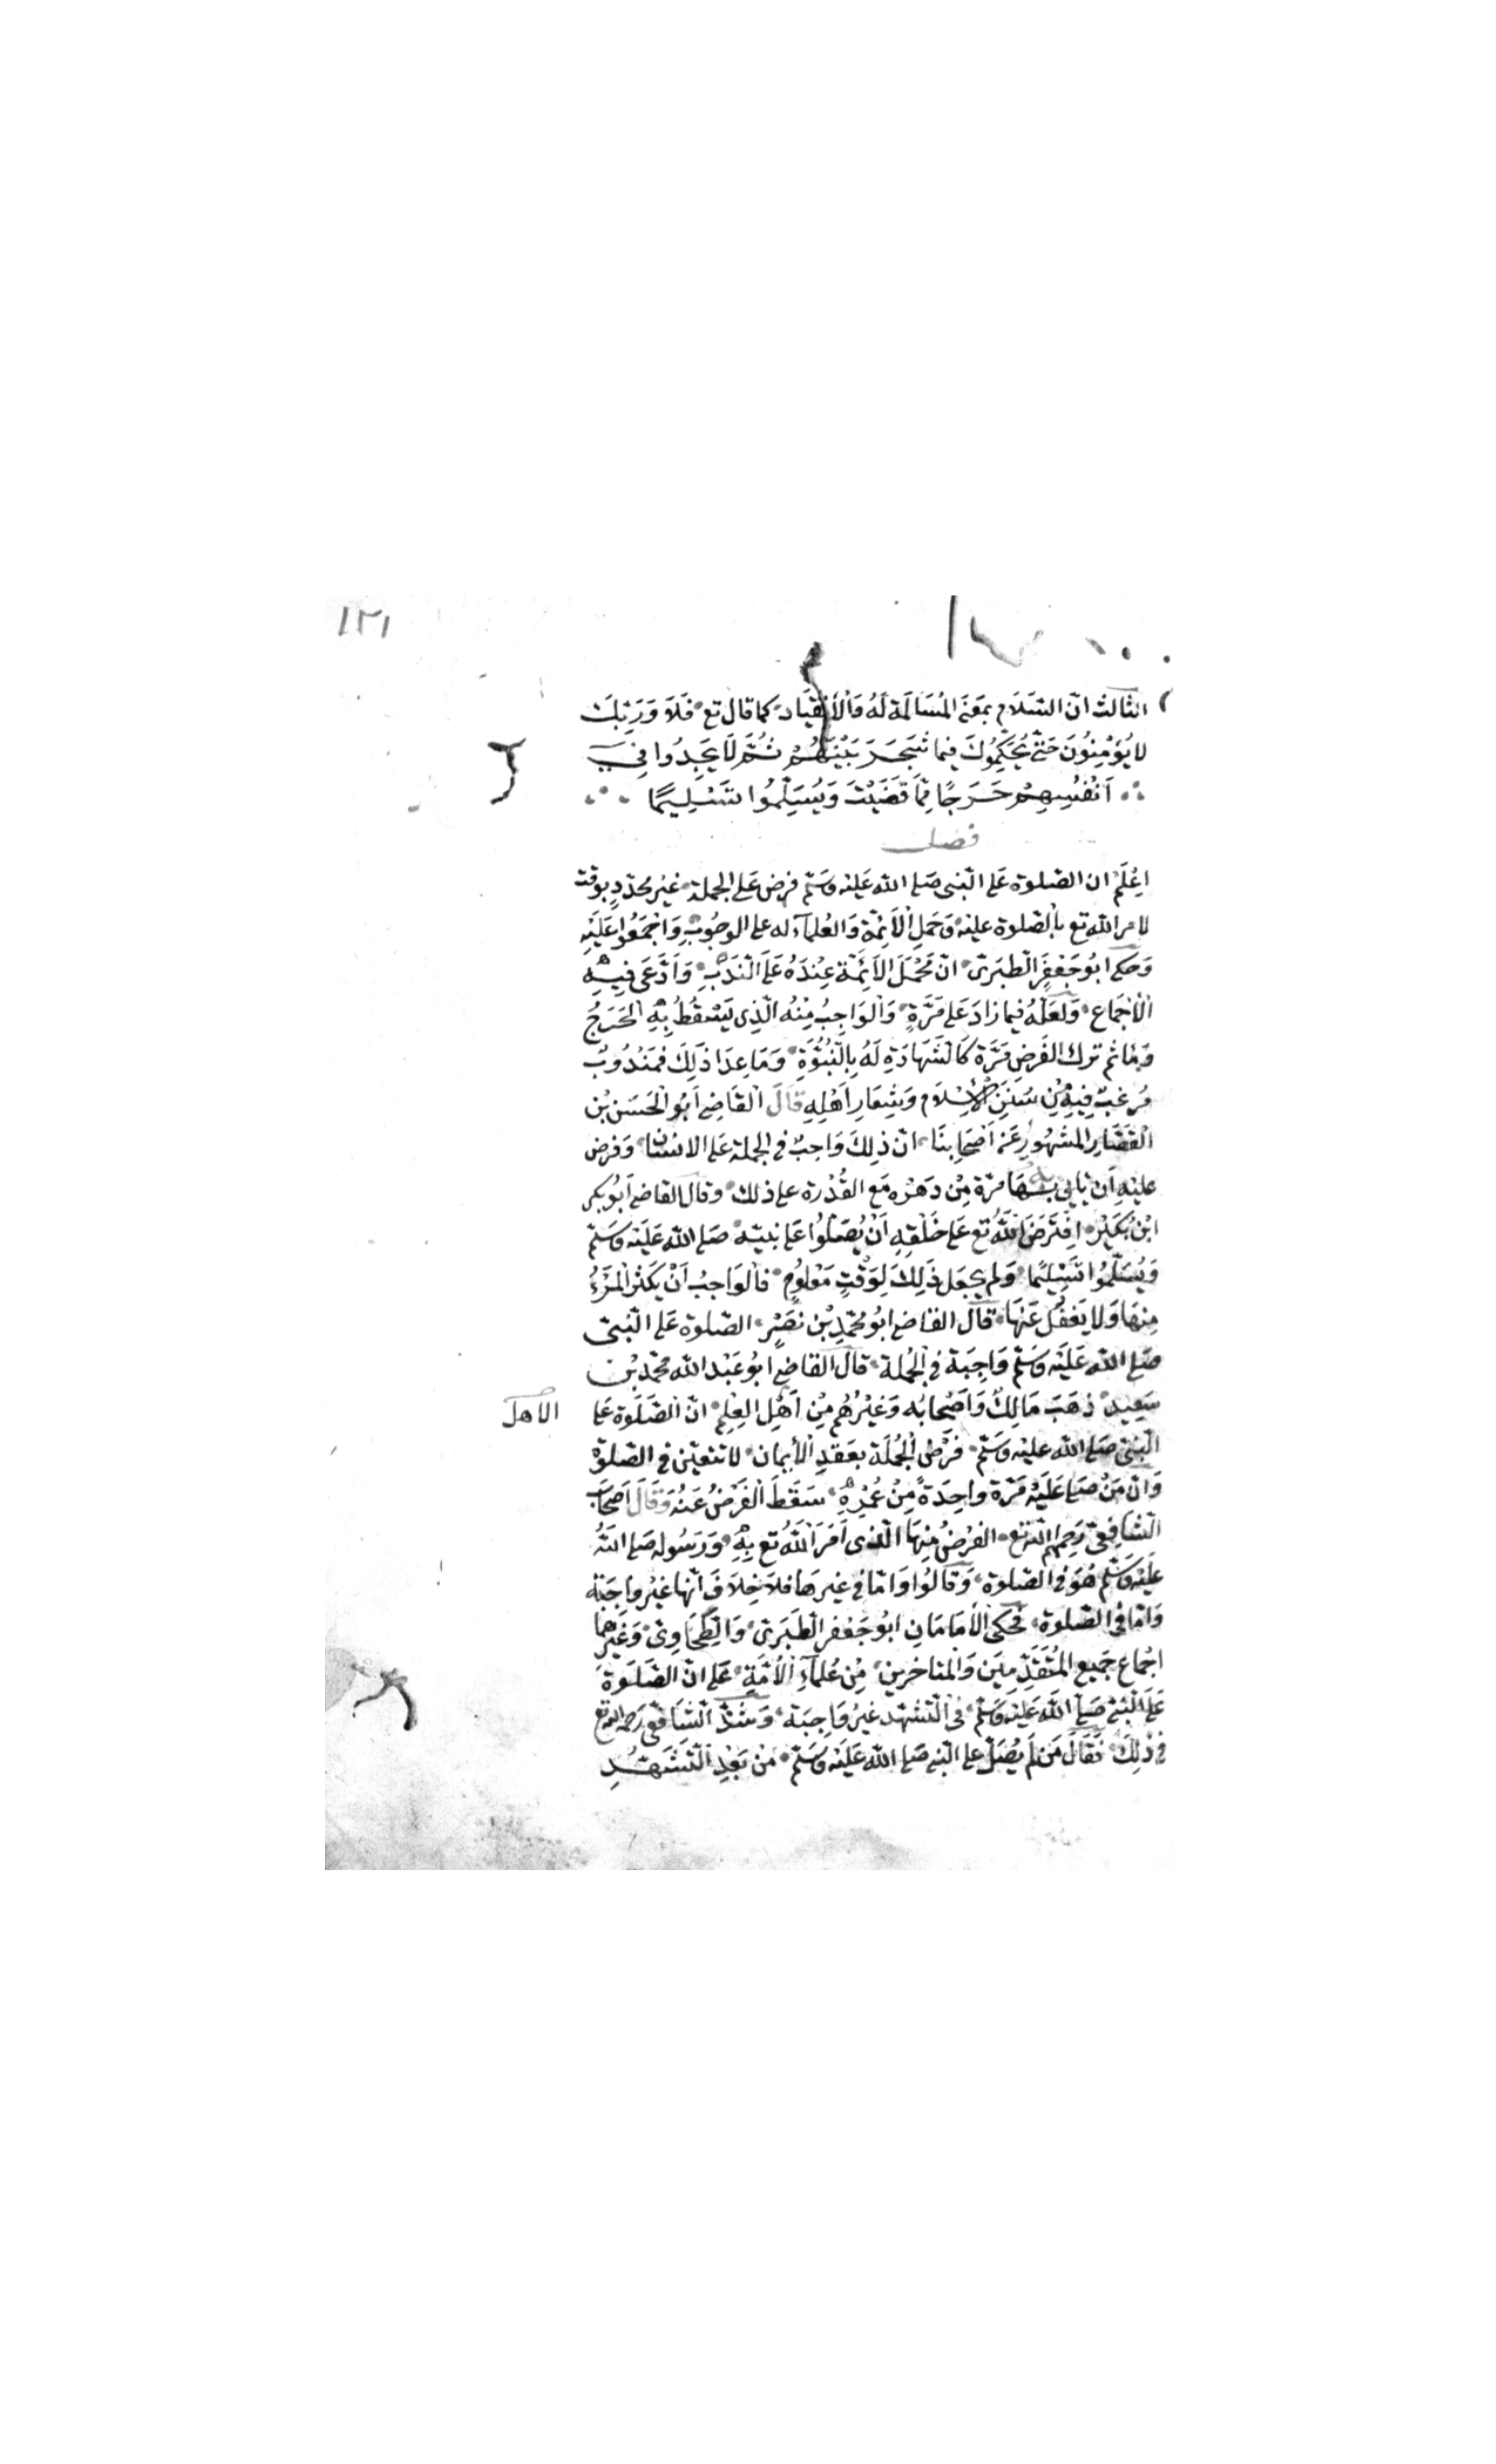 ١٢١
الثالث انّ السَّلَام بمَعنَى المُسَالَمة لَهُ وَالْاِنْقِيَاد كما قال تع فَلَا وَرَبِّكَ
لا يُؤْمِنُونَ حَتّى يُحَكِّمُوكَ فِيما شَجَرَ بَيْنَهُمْ ثُمَّ لَا يَجِدُوا فِي
اَنْفُسِهِمْ حَرَجًا مِمَّا قَضَيْتَ وَيُسَلِّمُوا تَسْلِيمًا
فصل
اِعْلَمْ ان الصّلوة عَلى النّبى صَلى الله عَليْه وسَلّم فرض عَلى الجملة غيْر محدّدٍ بوقت
لامر الله تع بالصّلوة عليْه وَحَمل الْاَئِمّة وَالعُلمآء له على الوجُوبِ وَاجْمَعُوا عَلَيْهِ
وَحَكى ابُو جَعْفَرٍ الطبَرىّ انّ مَحْمَلَ الاَئِمّة عِنْدَهُ عَلَى النّدْبِ وَادَّعَى فِيهِ
الْاجْمَاع وَلَعَلّهُ فِيما زادَ عَلى مَرَّةٍ وَالْوَاجِبُ مِنْهُ الّذِى يَسْقُطُ بِهِ الحَرَجُ
وَمَاثم ترك الفَرضِ مَرّة كَالشّهَادَةِ لَهُ بِالنّبُوَّةِ وَمَا عدَا ذَلِكَ فمَنْدُوبٌ
مُرغبٌ فِيهِ مِنْ سُنَنِ الْاِسْلَام وَشِعَارِ اَهْلِهِ قالَ القَاضِى اَبُو الحَسَن بْن
القَصّار المشهُور عَنْ اَصْحَابِنَا انّ ذلكَ وَاجبٌ فى الجملة عَلى الانسَان وَفرض
عليْهِ اَن ياتى بِهَا مَرّة مِنْ دَهْرِه مَع القُدْرة على ذلك وقال القاضى اَبُو بكر
ابْن بُكَيْر افتَرَضَ اللّهُ تع عَلى خَلْقِهِ اَنْ يُصَلّوا عَلى نبيّه صَلى الله عَلَيْه وَسَلّم
وَيُسَلِّمُوا تَسْلِيمًا وَلم يجعَل ذَلِكَ لِوَقْتٍ مَعْلُومٍ فالوَاجبُ اَنْ يكثر المَرْءُ
مِنهَا وَلا يَغفُل عَنْهَا قالَ القاضى ابُو مُحمّدِ بْن نَصْرٍ الصّلوة عَلى النّبىّ
صَلى الله عَلَيْه وسَلّم وَاجبَة فى الجُملة قال القَاضى ابُو عَبْد الله محمّد بْن
سَعِيد ذهَبَ مَالِكٌ وَاَصْحَابُه وَغيْرُهُم مِنْ اَهْل العِلْم انّ الصَّلَوة عَلى
الاهل
النّبىّ صَلى الله عليْه وَسَلّم فَرْضٌ الجُملَة بعَقدِ الْايمان لا تتعيّن فى الصّلوة
وَانّ مَنْ صَلى عَلَيْه مَرّة واحِدَةً مِنْ عُمْرِهِ سَقَطَ الفَرْضُ عَنْهُ وَقَالَ اَصْحَابُ
الشّافِعىّ رَحِمَهم اللّه تع الفَرْضُ مِنهَا الّذى اَمَرَ اللّهُ تع بِهِ وَرَسُوله صَلى اللّهُ
عَليْه وَسَلّم هُوَ فى الصّلوة وَقالُوا وَامّا فى غيرهَا فلَا خِلَافَ اَنّها غيْر واجِبَة
وَامّا فى الصّلوة فحكى الْاِمَامَانِ ابُو جَعْفر الطَبَرىّ وَالطّحَاوِىّ وَغيْرهُما
اجْماع جَميع المُتقَدّميْن وَالْمتاخرين مِنْ عُلمآء الْاُمّةِ عَلى انّ الصَّلَوة
عَلى النّبىّ صَلى اللّه عَليْه وَسَلّم فى التّشَهّد غيْرُ وَاجِبَة وَشَذّ الشّافعىّ رَحمه الله تع
فى ذلِكَ فقَالَ مَن لم يُصَلّ على النّبى صَلى الله عَلَيْه وَسَلّم مِنْ بَعْدِ التّشَهّدِ